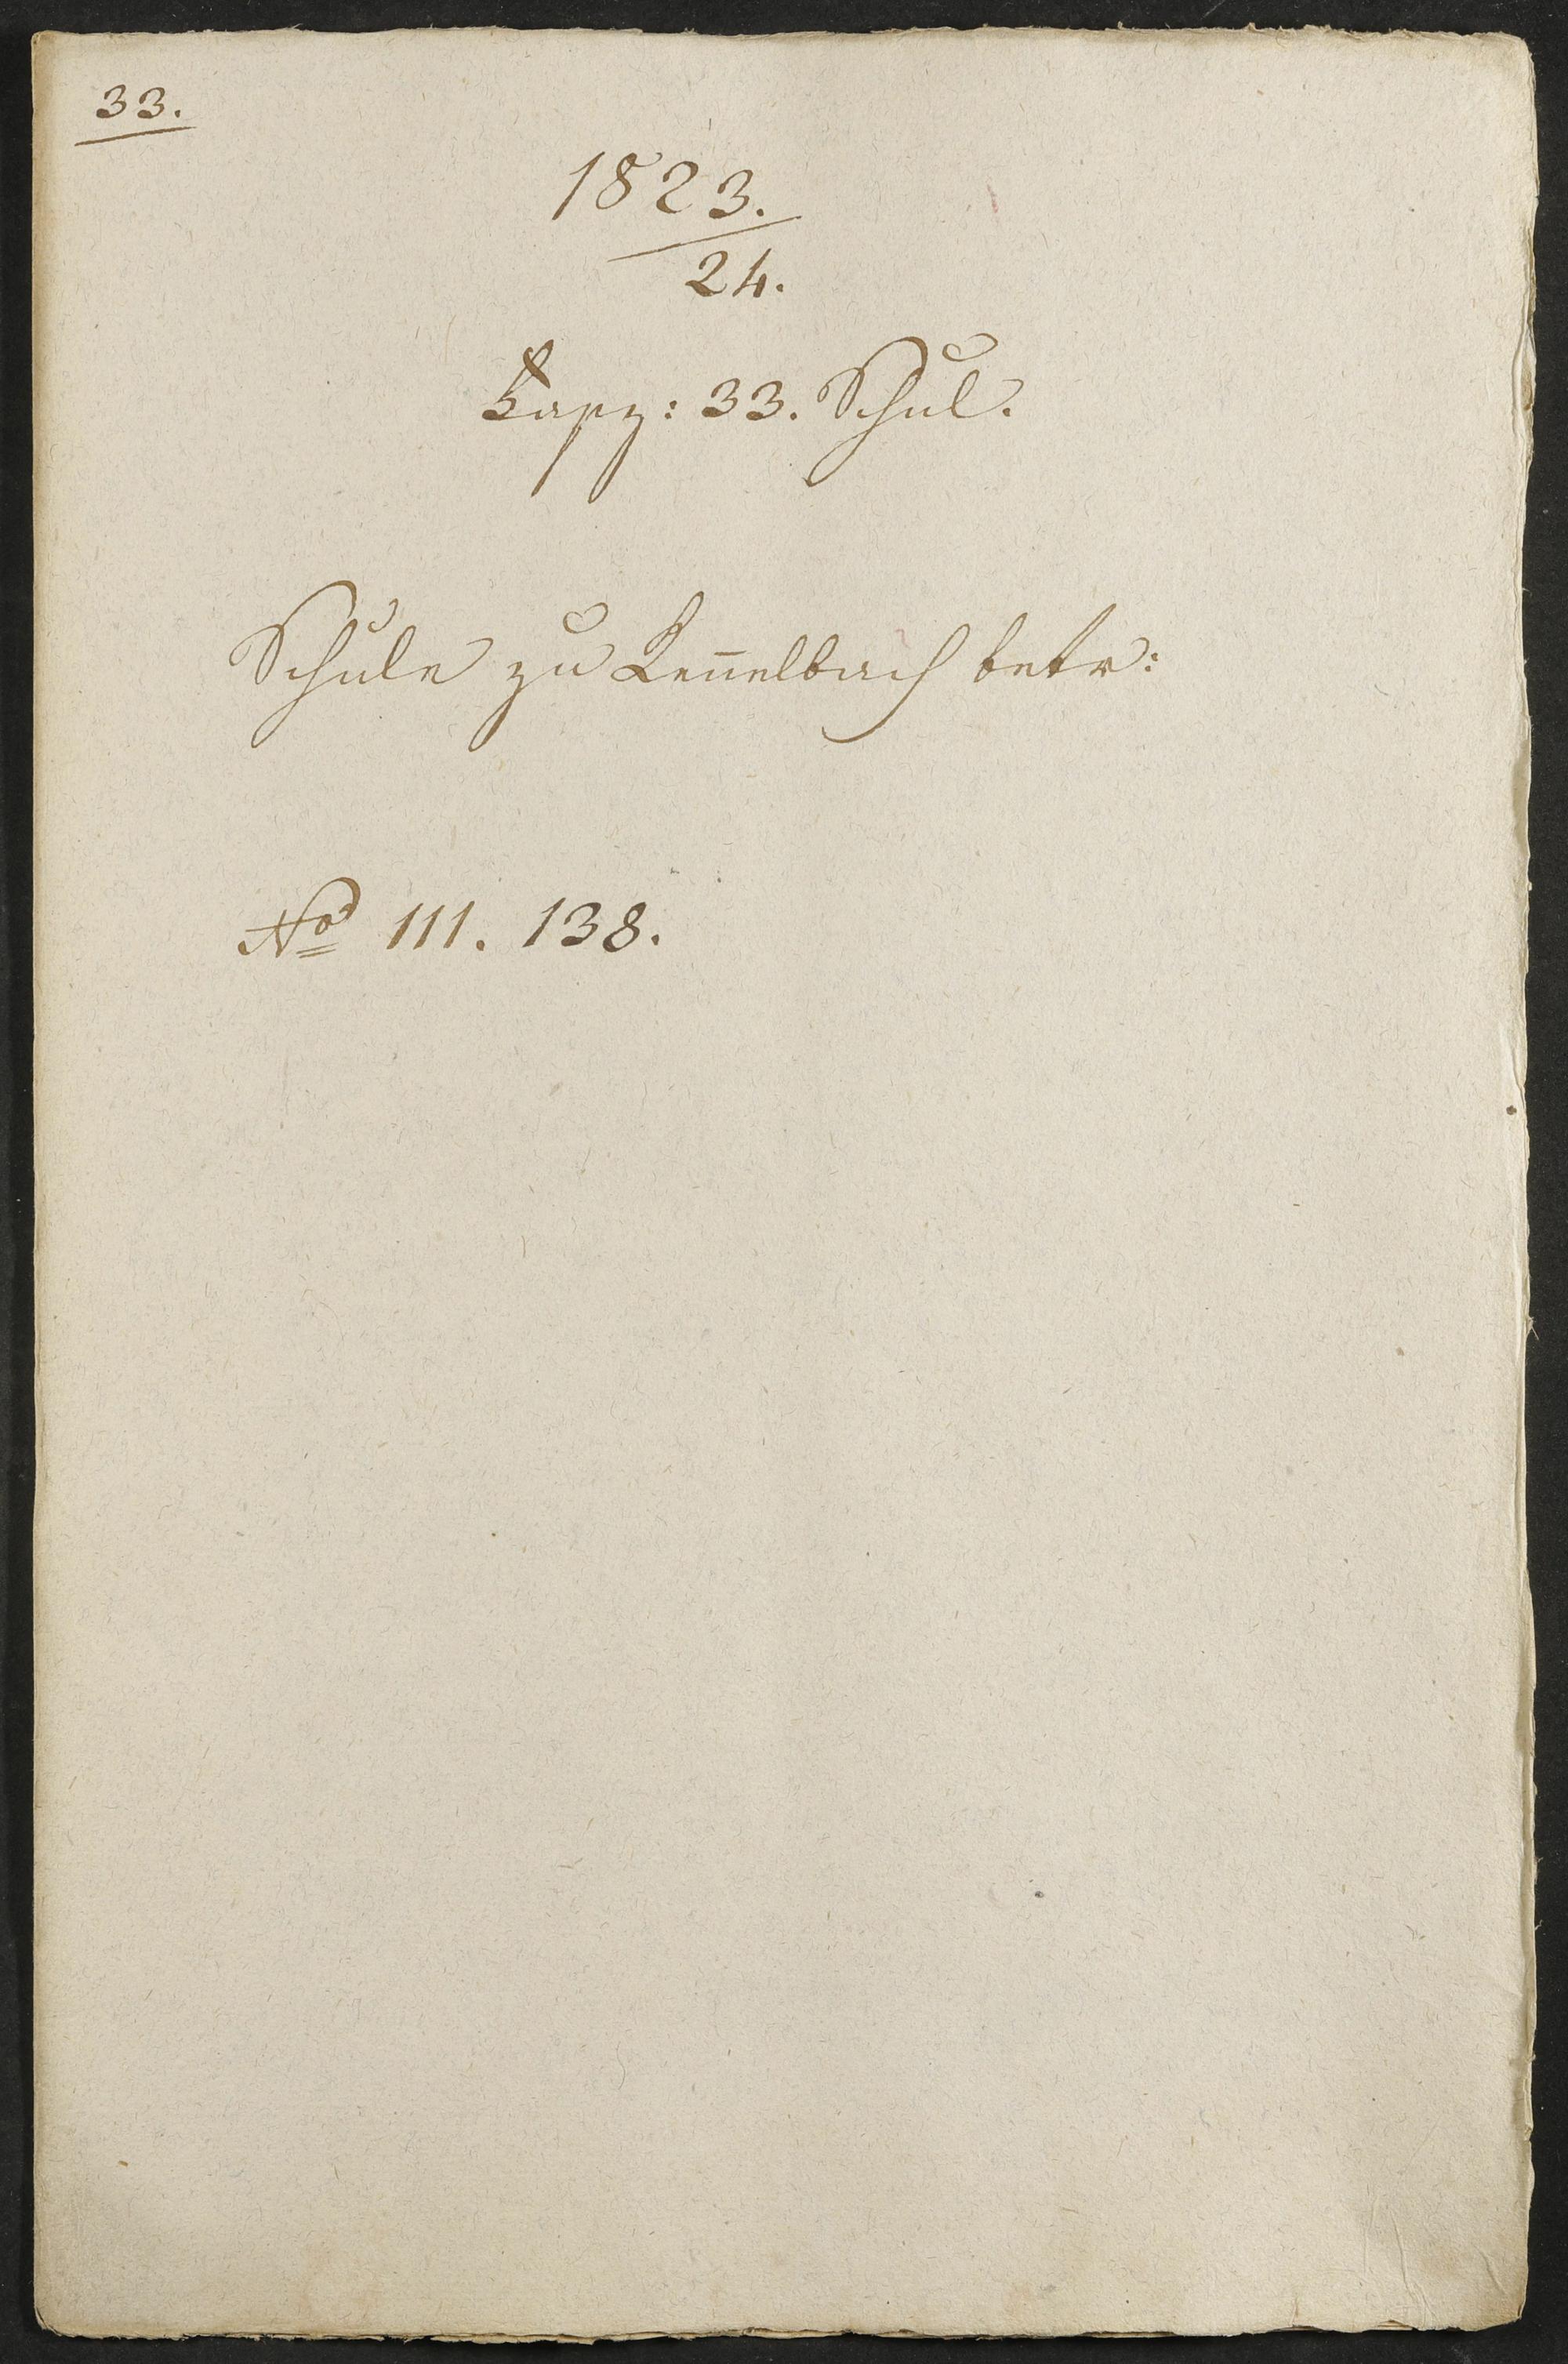 33.
1823.
24.
Fasz: 33. Schul.
Schule zu Kennelbach betr:
No 111. 138.